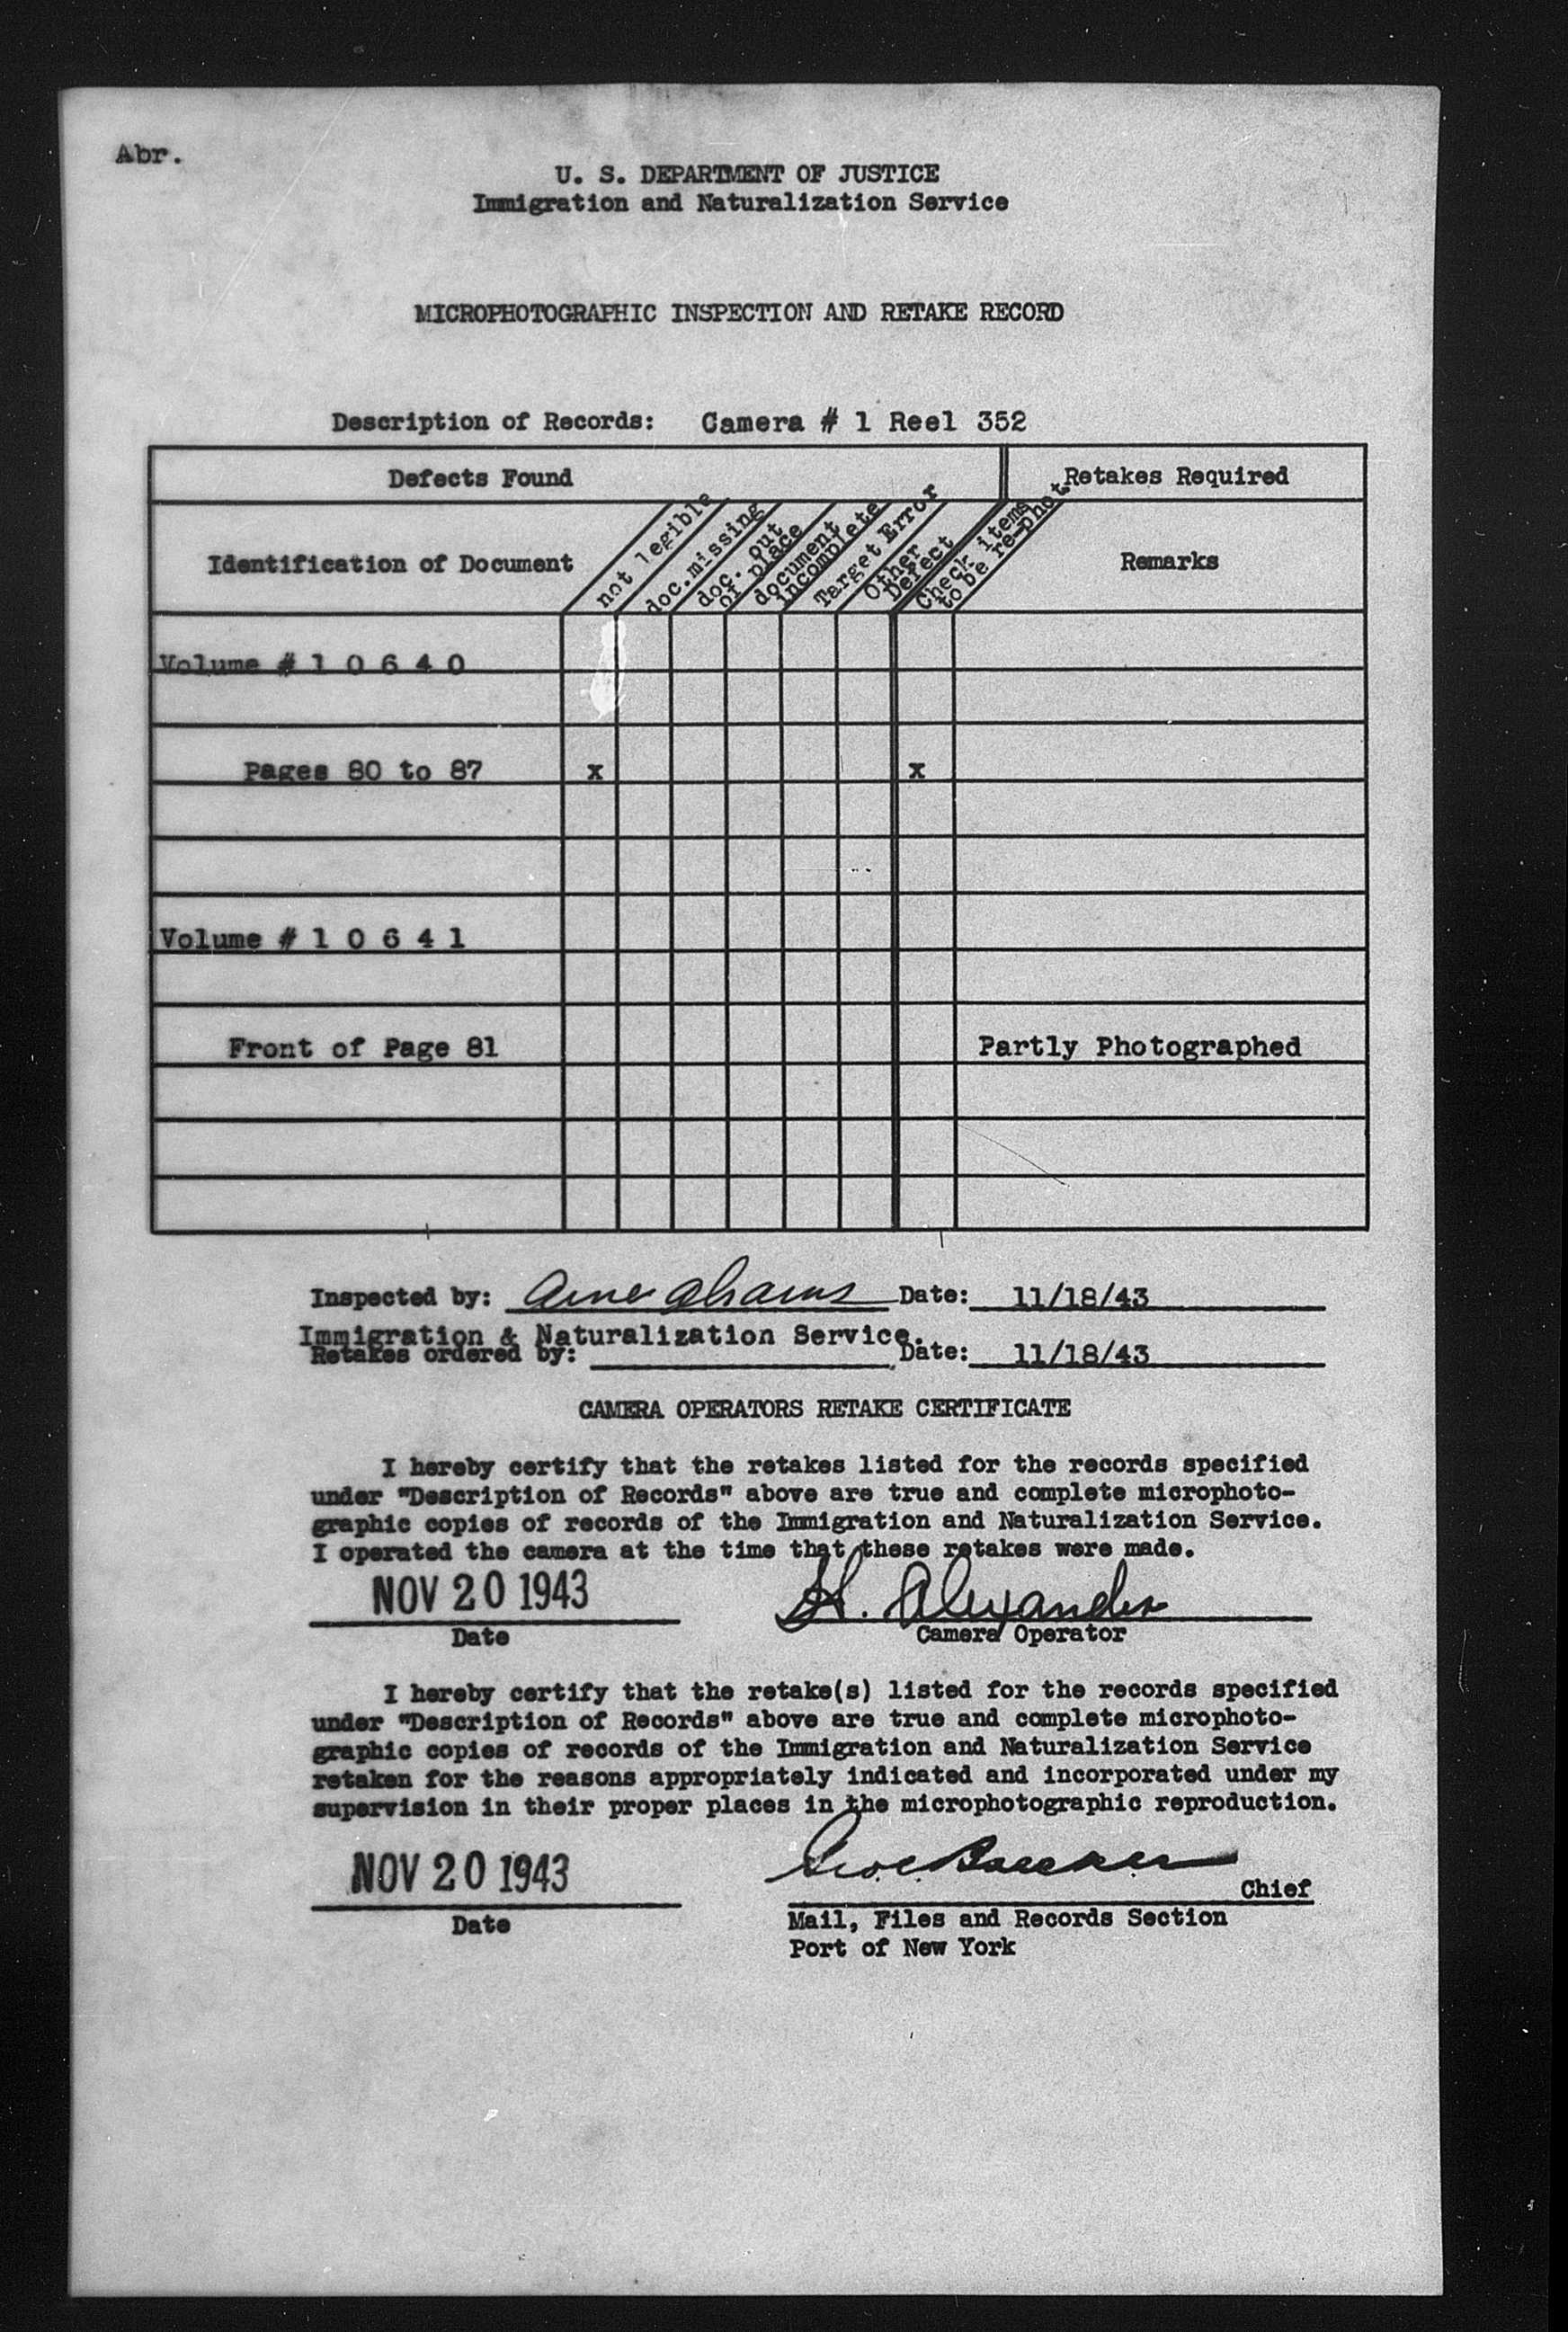 Abr.
U. S. DEPARTMENT OF JUSTICE
Immigration and Naturalization Service
MICROPHOTOGRAPHIC INSPECTION AND RETAKE RECORD
Description of Records: Camera # 1 Reel 352
Defects Found
Retakes Required
Identification of Document
not legible
doc.missing
doc. out
of place
document
incomplete
Target Error
Other
Defect
Check items
to be re-phot.
Remarks
Volume # 1 0 6 4 0
Pages 80 to 87 x x
Volume # 1 0 6 4 1
Front of Page 81 Partly Photographed
Inspected by: Date: 11/18/43
Immigration & Naturalization Service.
Retakes ordered by: Date: 11/18/43
CAMERA OPERATORS RETAKE CERTIFICATE
I hereby certify that the retakes listed for the records specified
under "Description of Records" above are true and complete microphoto-
graphic copies of records of the Immigration and Naturalization Service.
I operated the camera at the time that these retakes were made.
NOV 20 1943 H. Alexander
Date Camera Operator
I hereby certify that the retake(s) listed for the records specified
under "Description of Records" above are true and complete microphoto-
graphic copies of records of the Immigration and Naturalization Service
retaken for the reasons appropriately indicated and incorporated under my
supervision in their proper places in the microphotographic reproduction.
NOV 20 1943
Chief
Date
Mail, Files and Records Section
Port of New York